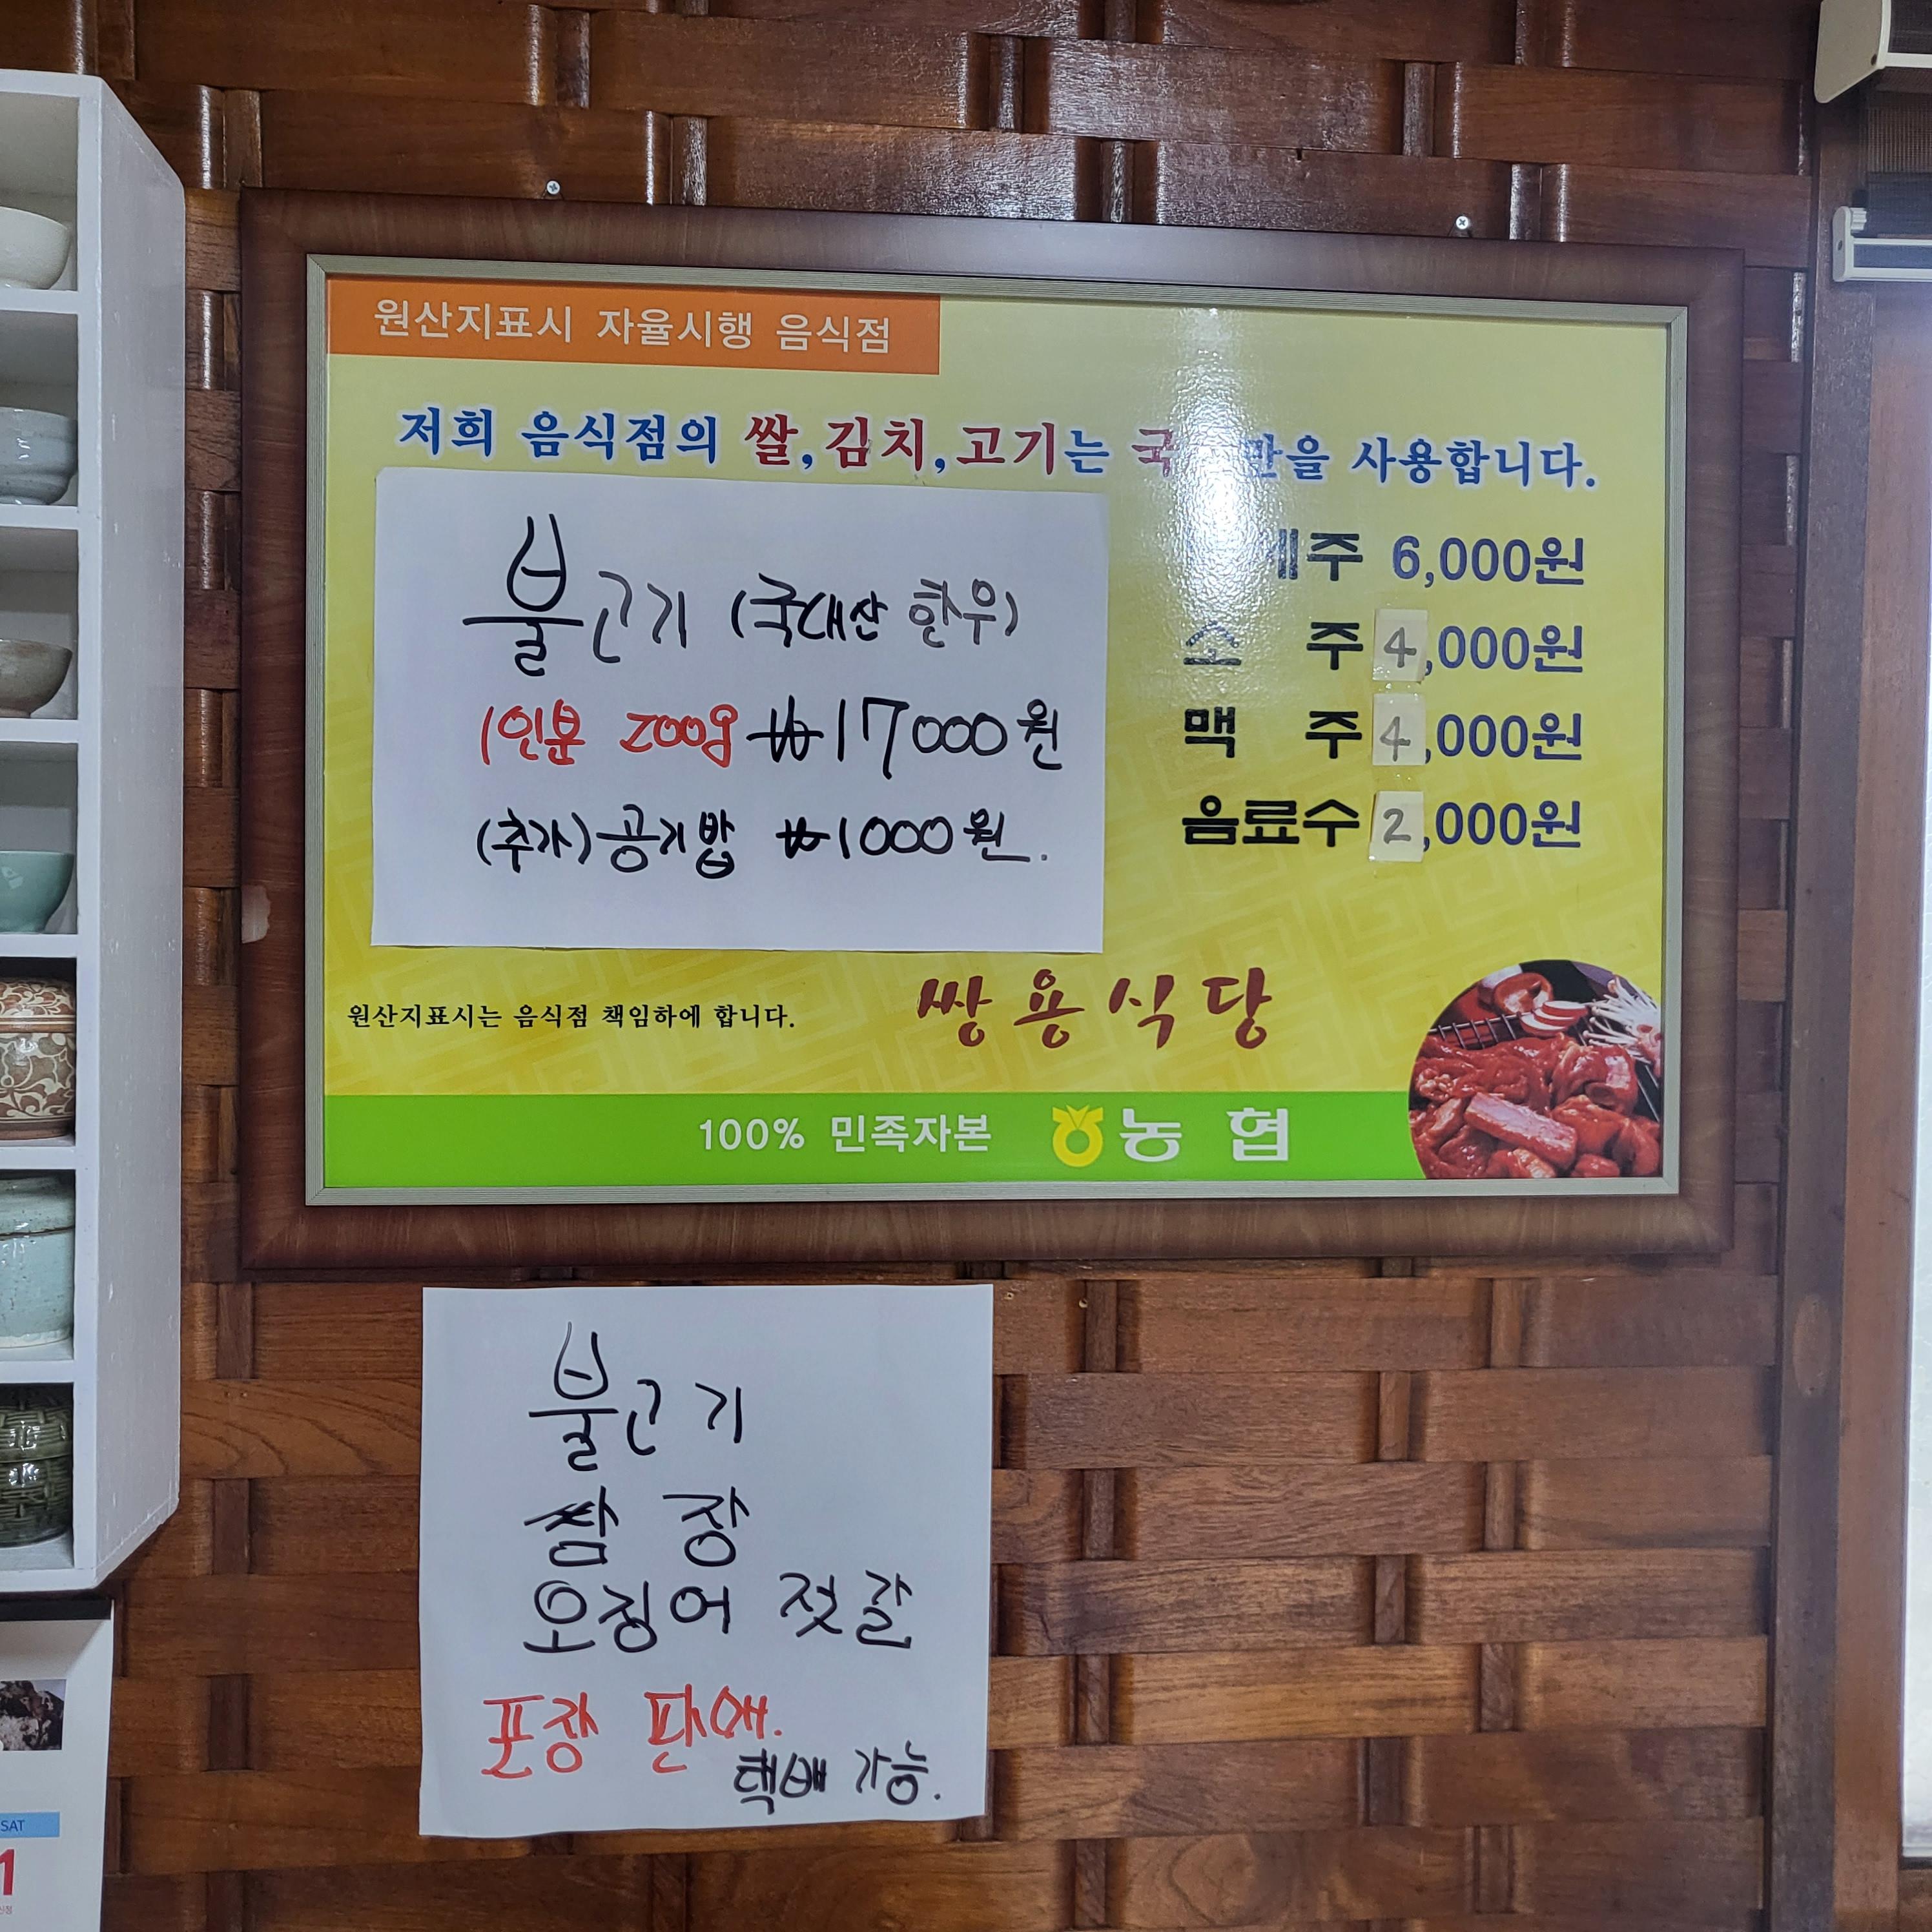 원산지표시 자율시행 음식점
저희 음식점의 쌀,김치,고기는 사용합니다.
불고기 (국내산 한우)
1인분 200g ₩17000원
(추가)공기밥 ₩1000원.
6,000원
소 주 4,000원
맥 주 4,000원
음료수 2,000원
원산지표시는 음식점 책임하에 합니다.
쌍용식당
100% 민족자본 농협
불고기
쌈장
오징어 젓갈
포장 판매.
택배 가능.
SAT
1